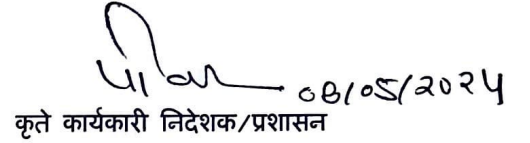 08/05/2024
कृते कार्यकारी निदेशक/प्रशासन